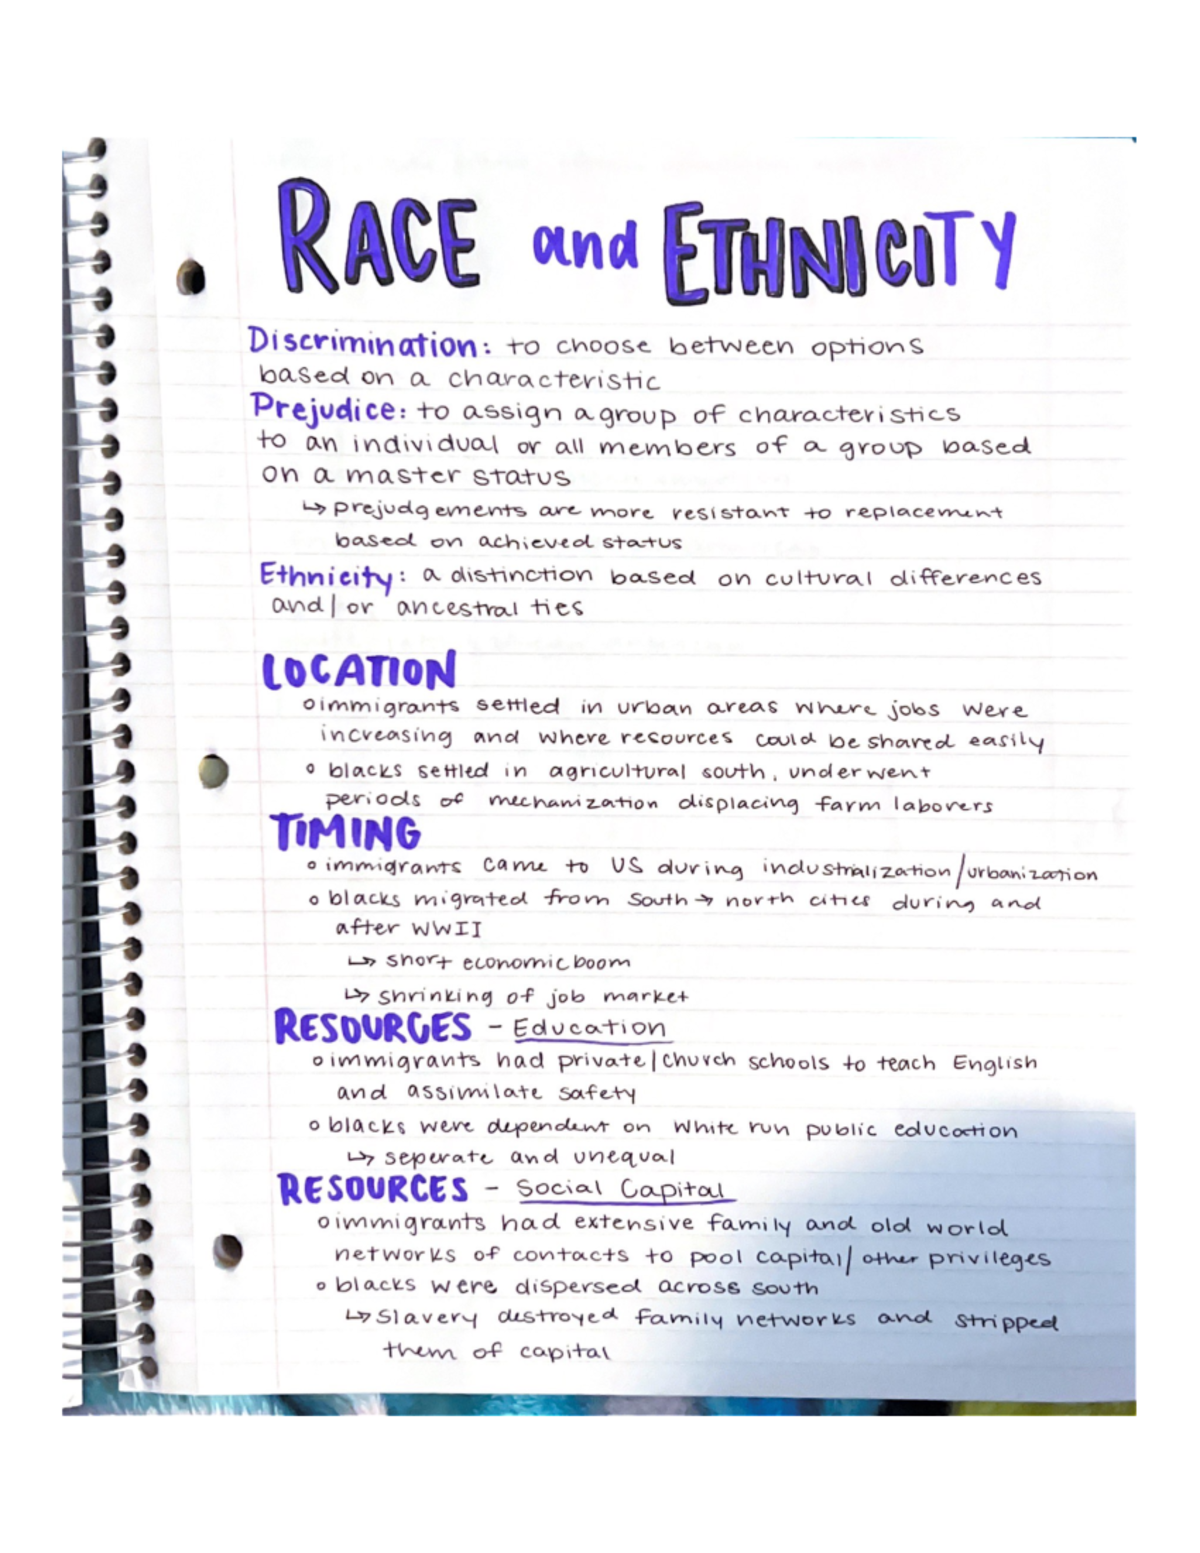 RACE and ETHNICITY
Discrimination: to choose between options
based on a characteristic
Prejudice: to assign a group of characteristics
to an individual or all members of a group based
on a master status
↳ prejudgements are more resistant to replacement
based on achieved status
Ethnicity: a distinction based on cultural differences
and/or ancestral ties
LOCATION
o immigrants settled in urban areas where jobs were
increasing and where resources could be shared easily
o blacks settled in agricultural south, underwent
periods of mechanization displacing farm laborers
TIMING
o immigrants came to US during industrialization/urbanization
o blacks migrated from South → north cities during and
after WWII
↳ short economic boom
↳ shrinking of job market
RESOURCES - Education
o immigrants had private/church schools to teach English
and assimilate safety
o blacks were dependent on white run public education
↳ seperate and unequal
RESOURCES - Social Capital
o immigrants had extensive family and old world
networks of contacts to pool capital/other privileges
o blacks were dispersed across south
↳ Slavery destroyed family networks and stripped
them of capital